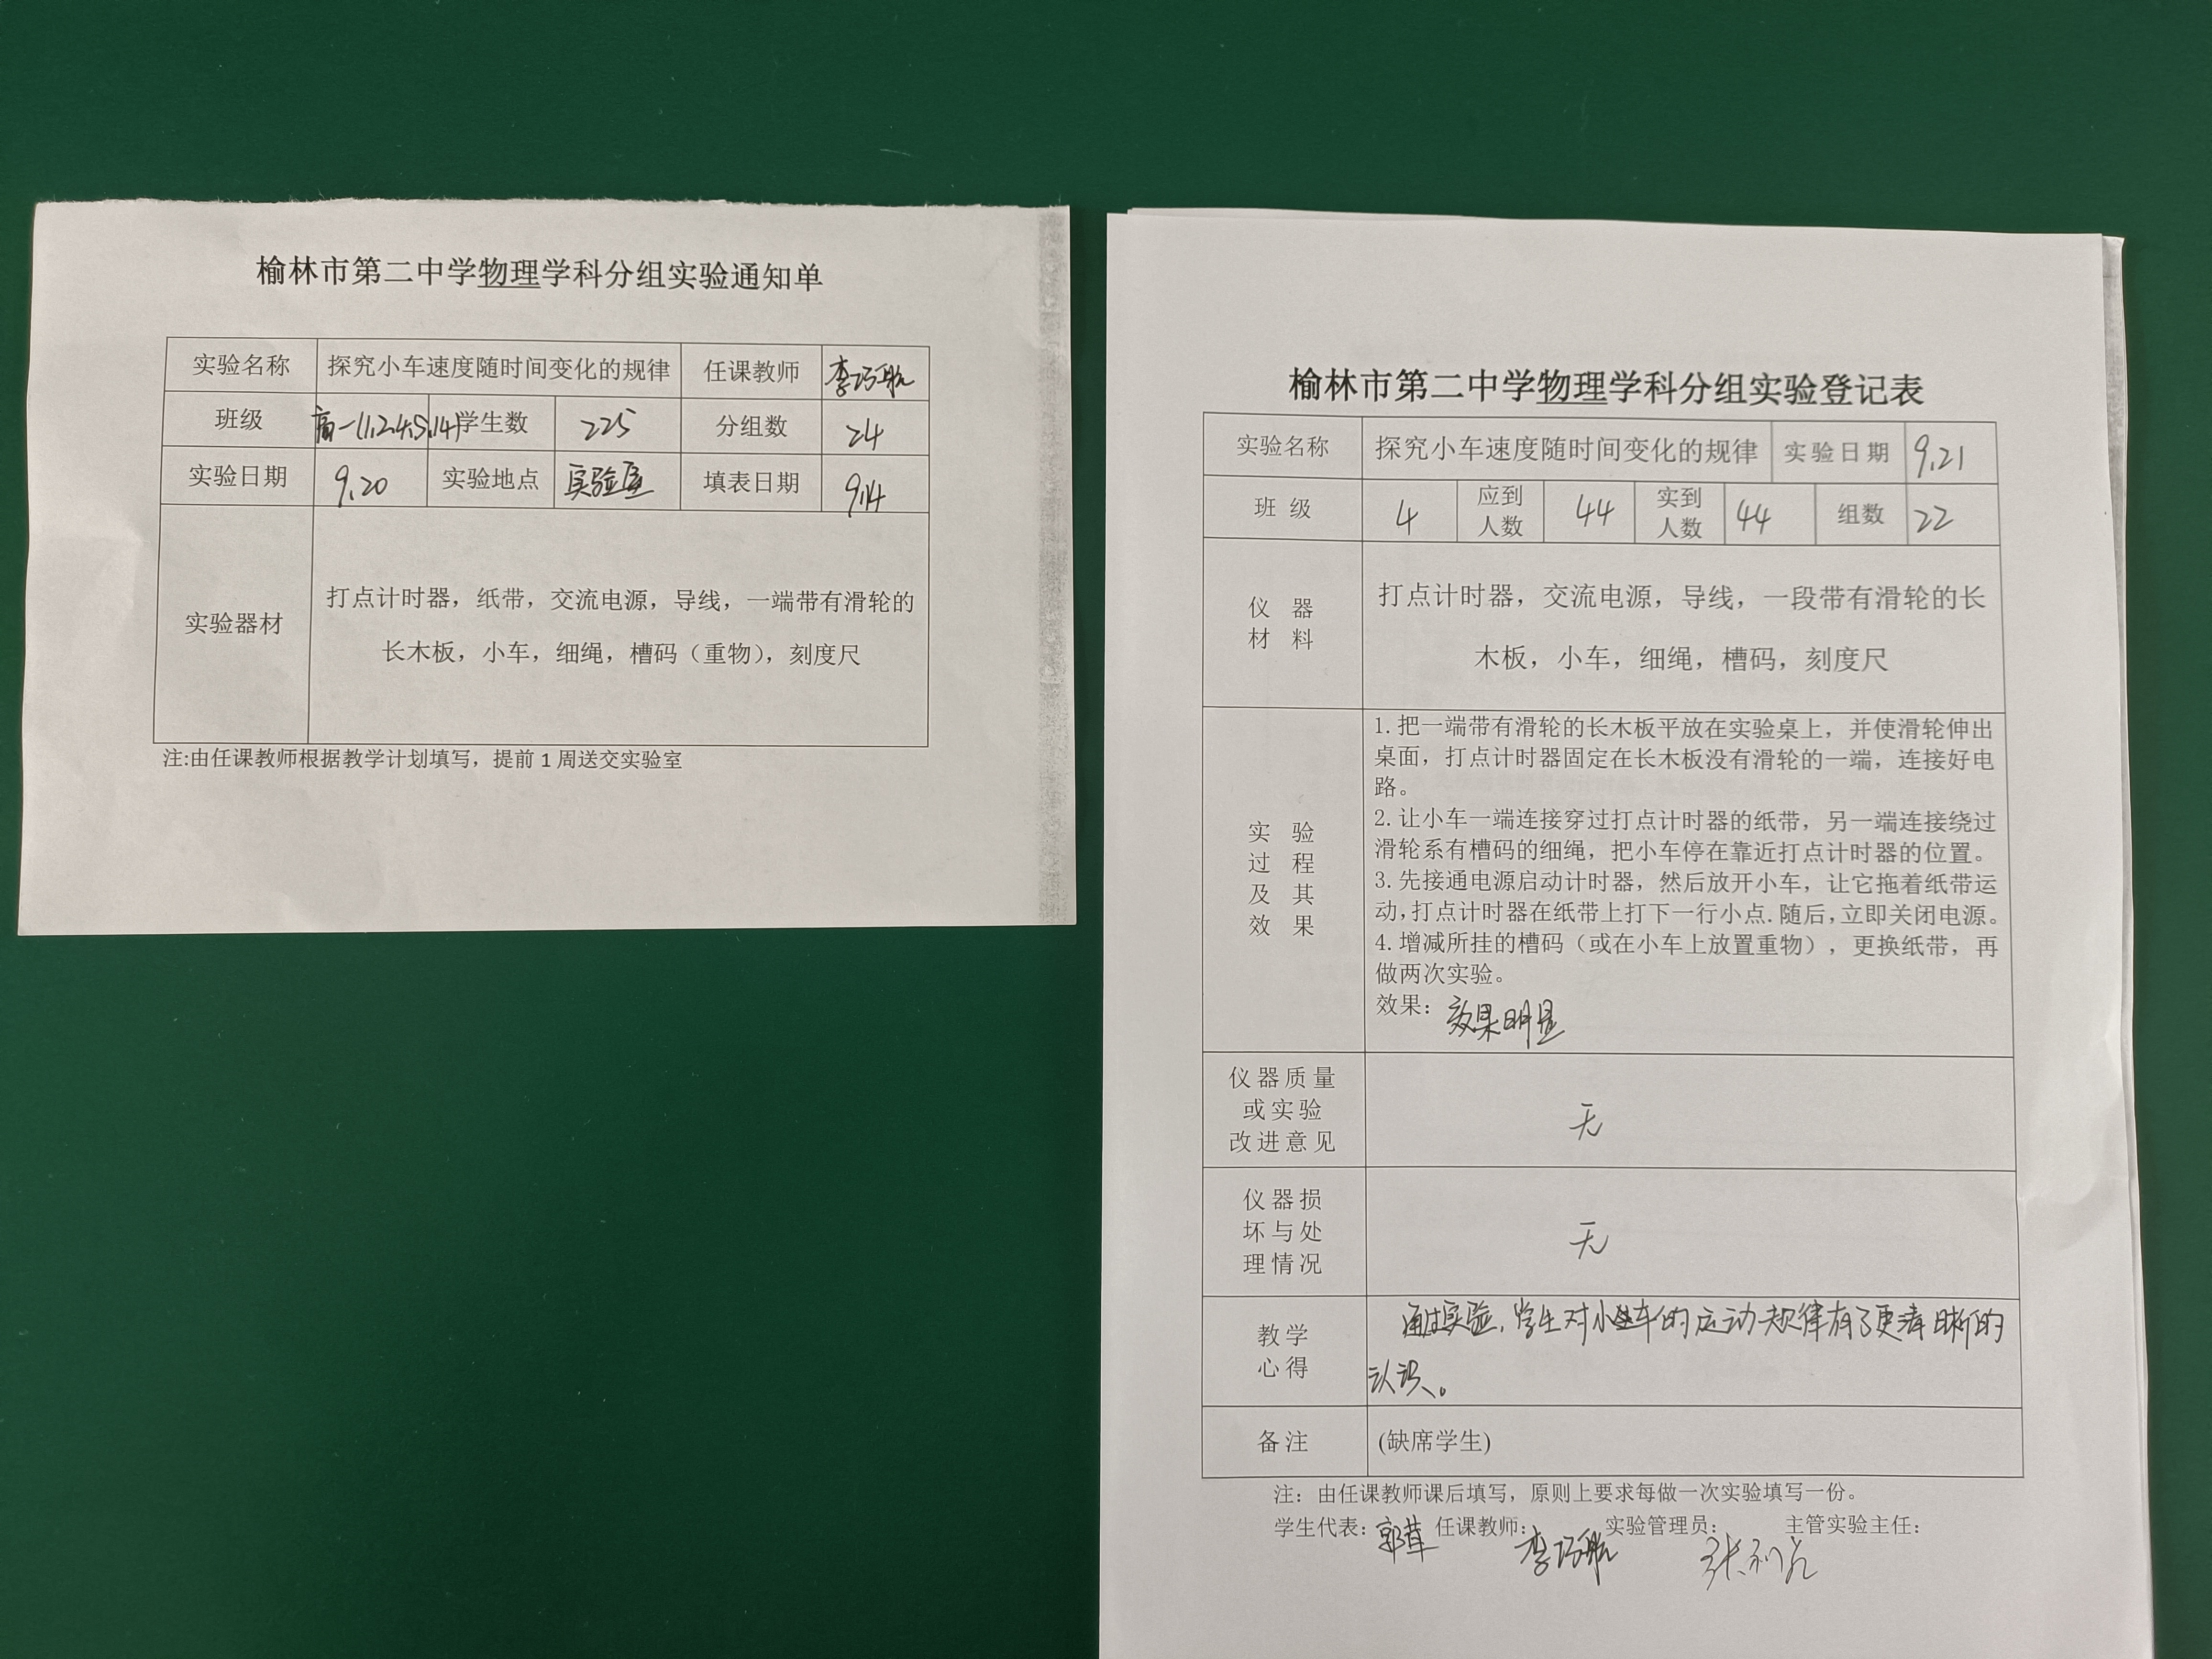 榆林市第二中学物理学科分组实验通知单
实验名称 探究小车速度随时间变化的规律 任课教师 李巧航
班级 高一(1,2,4,5,14) 学生数 225 分组数 24
实验日期 9.20 实验地点 实验室 填表日期 9.14
实验器材
打点计时器，纸带，交流电源，导线，一端带有滑轮的
长木板，小车，细绳，槽码（重物），刻度尺
注:由任课教师根据教学计划填写，提前1周送交实验室
榆林市第二中学物理学科分组实验登记表
实验名称 探究小车速度随时间变化的规律 实验日期 9.21
班级 4 应到人数 44 实到人数 44 组数 22
仪器
材料
打点计时器，交流电源，导线，一段带有滑轮的长
木板，小车，细绳，槽码，刻度尺
实验
过程
及其
效果
1.把一端带有滑轮的长木板平放在实验桌上，并使滑轮伸出
桌面，打点计时器固定在长木板没有滑轮的一端，连接好电
路。
2.让小车一端连接穿过打点计时器的纸带，另一端连接绕过
滑轮系有槽码的细绳，把小车停在靠近打点计时器的位置。
3.先接通电源启动计时器，然后放开小车，让它拖着纸带运
动,打点计时器在纸带上打下一行小点.随后,立即关闭电源。
4.增减所挂的槽码（或在小车上放置重物），更换纸带，再
做两次实验。
效果：效果明显
仪器质量
或实验
改进意见
无
仪器损
坏与处
理情况
无
教学
心得
通过实验,学生对小车的运动规律有了更清晰的
认识。
备注 (缺席学生)
注：由任课教师课后填写，原则上要求每做一次实验填写一份。
学生代表： 任课教师：李巧航 实验管理员： 主管实验主任：